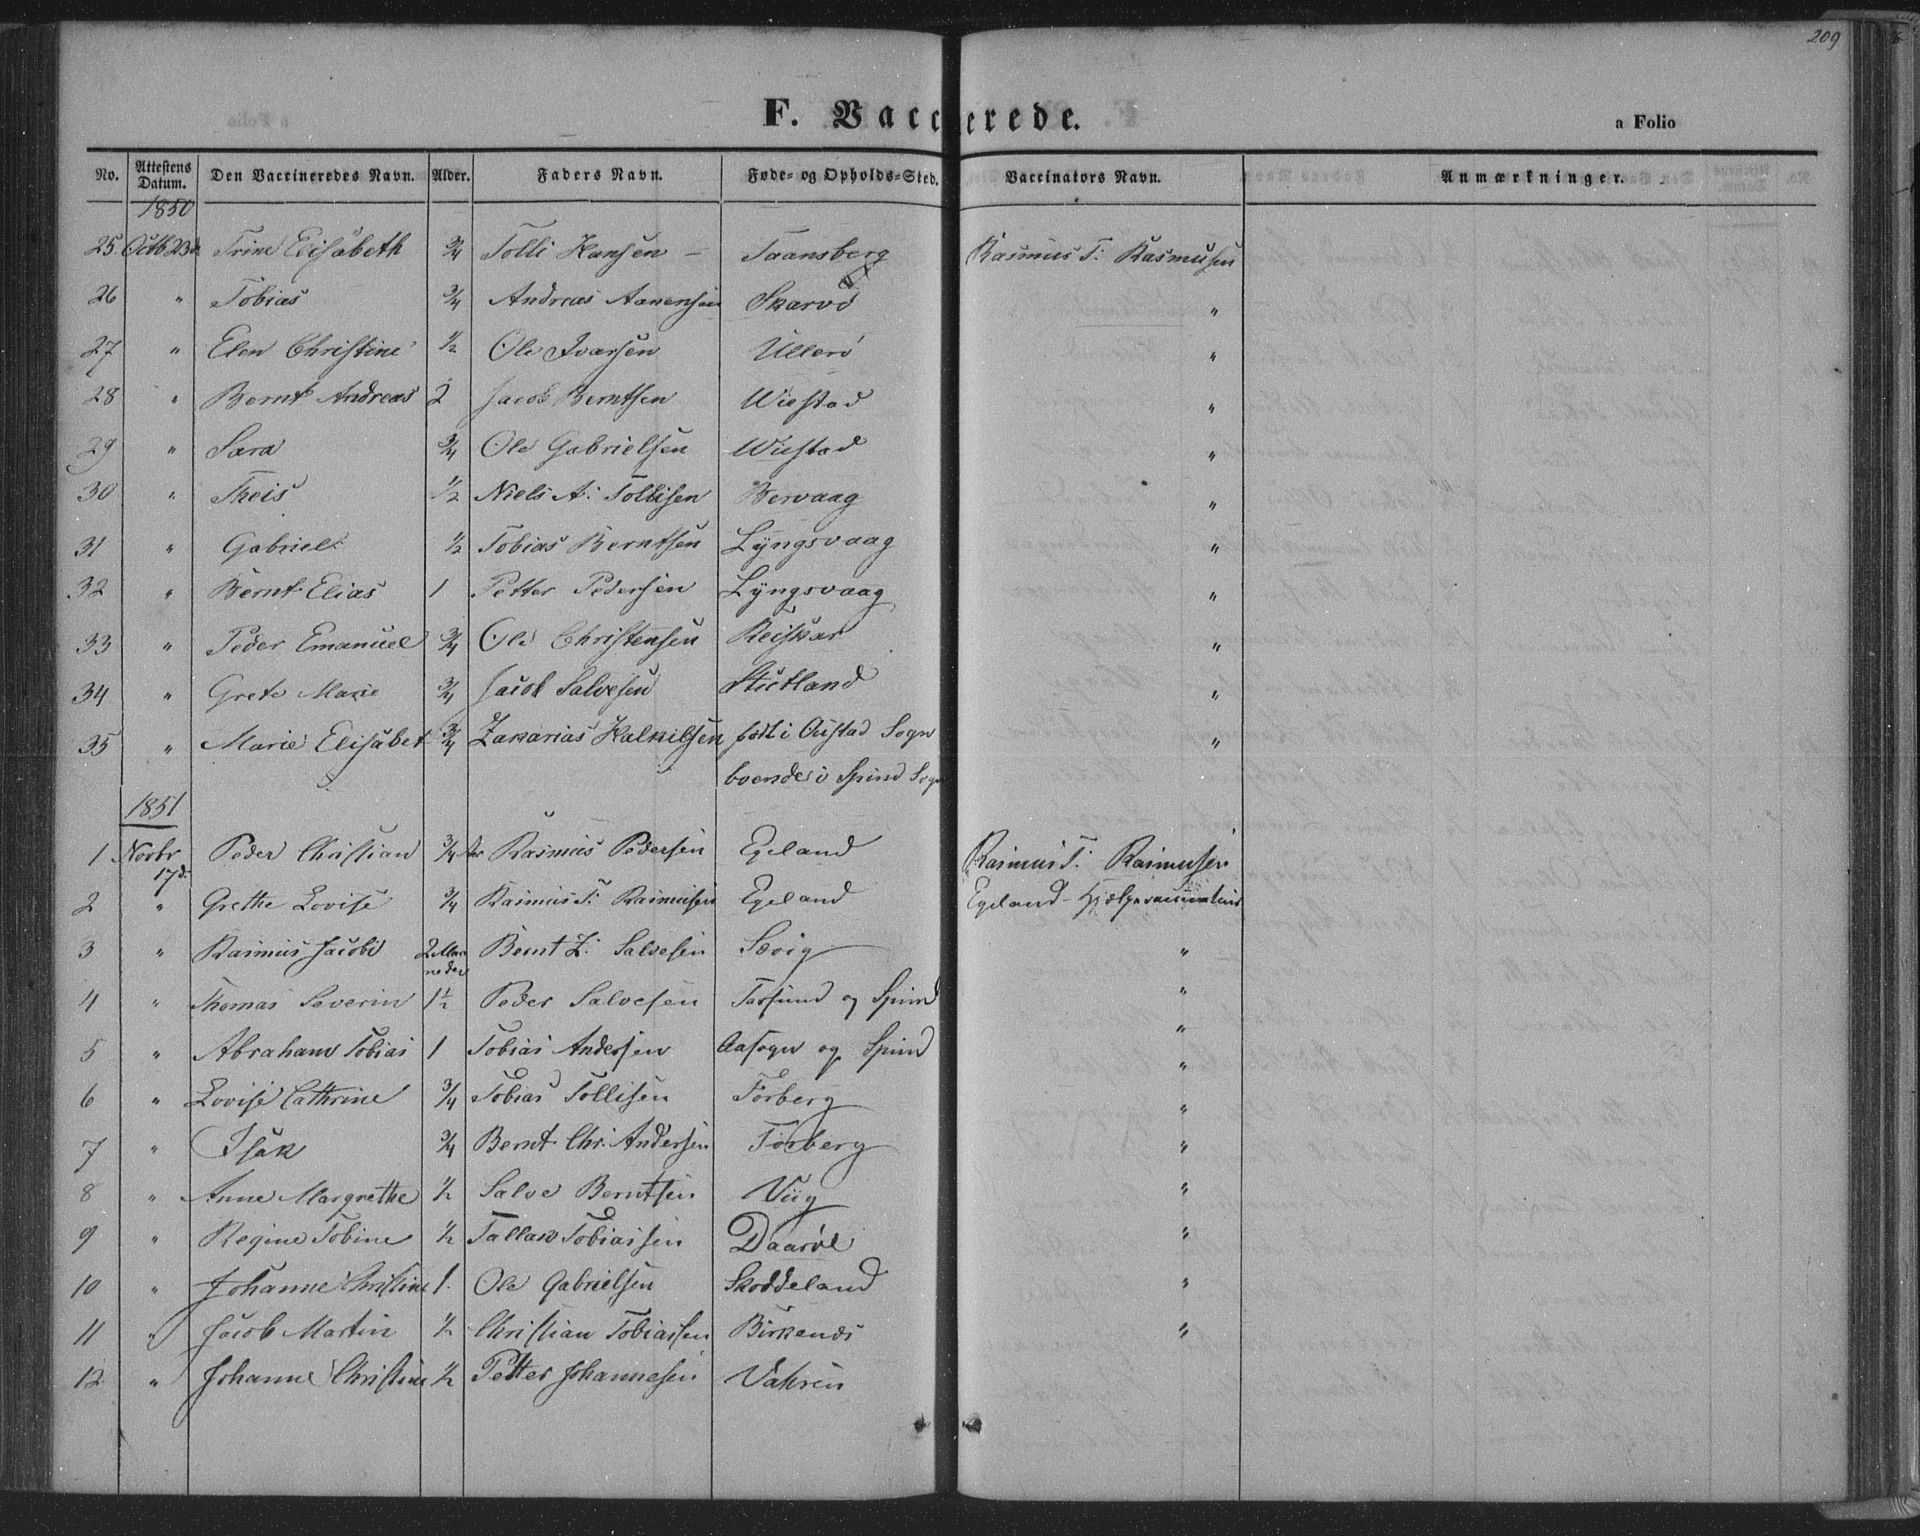 209
F. Vaccinerede.
a Folio
No. Attestens Datum. Den Vaccineredes Navn. Alder. Faders Navn. Føde- og Opholds-Sted. Vaccinators Navn. Anmærkninger.
1850
25 Octb 23d Trine Elisabeth 3/4 Tolli Hansen Taansberg Rasmus T: Rasmussen
26 " Tobias 3/4 Andreas Aanensen Skarvø "
27 " Elen Christine 1/2 Ole Ivarsen Ullerø "
28 " Bernt Andreas 2 Jacob Berntsen Wiestad "
29 " Sara 3/4 Ole Gabrielsen Wiestad "
30 " Theis 1/2 Niels A: Tollisen Bervaag "
31 " Gabriel 1/2 Tobias Berntsen Lyngsvaag "
32 " Bernt Elias 1 Petter Pedersen Lyngsvaag "
33 " Peder Emanuel 3/4 Ole Christensen Reiskar "
34 " Grete Marie 3/4 Jacob Salvesen Stuetland "
35 " Marie Elisabet 3/4 Zakarias Halkilsen født i Austad Sogn "
boende i Spind Sogn
1851
1 Novbr 17d. Peder Christian 3/4 Aar Rasmus Pedersen Egeland Rasmus T: Rasmussen
2 " Grethe Lovise 3/4 Rasmus T: Rasmussen Egeland Egeland - Hjelpevaccinateur
3 " Rasmus Jacob 2 Maaneder Bernt Z: Salvesen Sævig "
4 " Thomas Severin 1 1/2 Peder Salvesen Farsund og Spind "
5 " Abraham Tobias 1 Tobias Andersen Aasogn og Spind "
6 " Lovise Cathrine 3/4 Tobias Tollisen Forberg "
7 " Isak 3/4 Bernt Chr. Andersen Forberg "
8 " Anne Margrethe 1/2 Salve Berntsen Viig "
9 " Regine Tobine 1/2 Tallak Tobiassen "
10 " Johanne Christine 1. Ole Gabrielsen Skoddeland "
11 " Jacob Martin 1/2 Christian Tobiassen Birkenes "
12 " Johanne Christine 1/2 Petter Johannesen